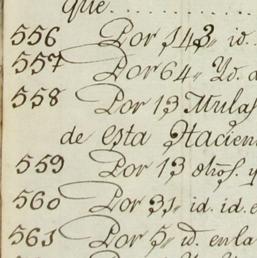 que..........
556 Por 143,, id.
557 Por 64,, Yd. d
558 Por 13 Mulas
de esta Hacien
559 Por 13 otros. y
560 Por 31,, id. id. e
561 Por 5,, id. en la